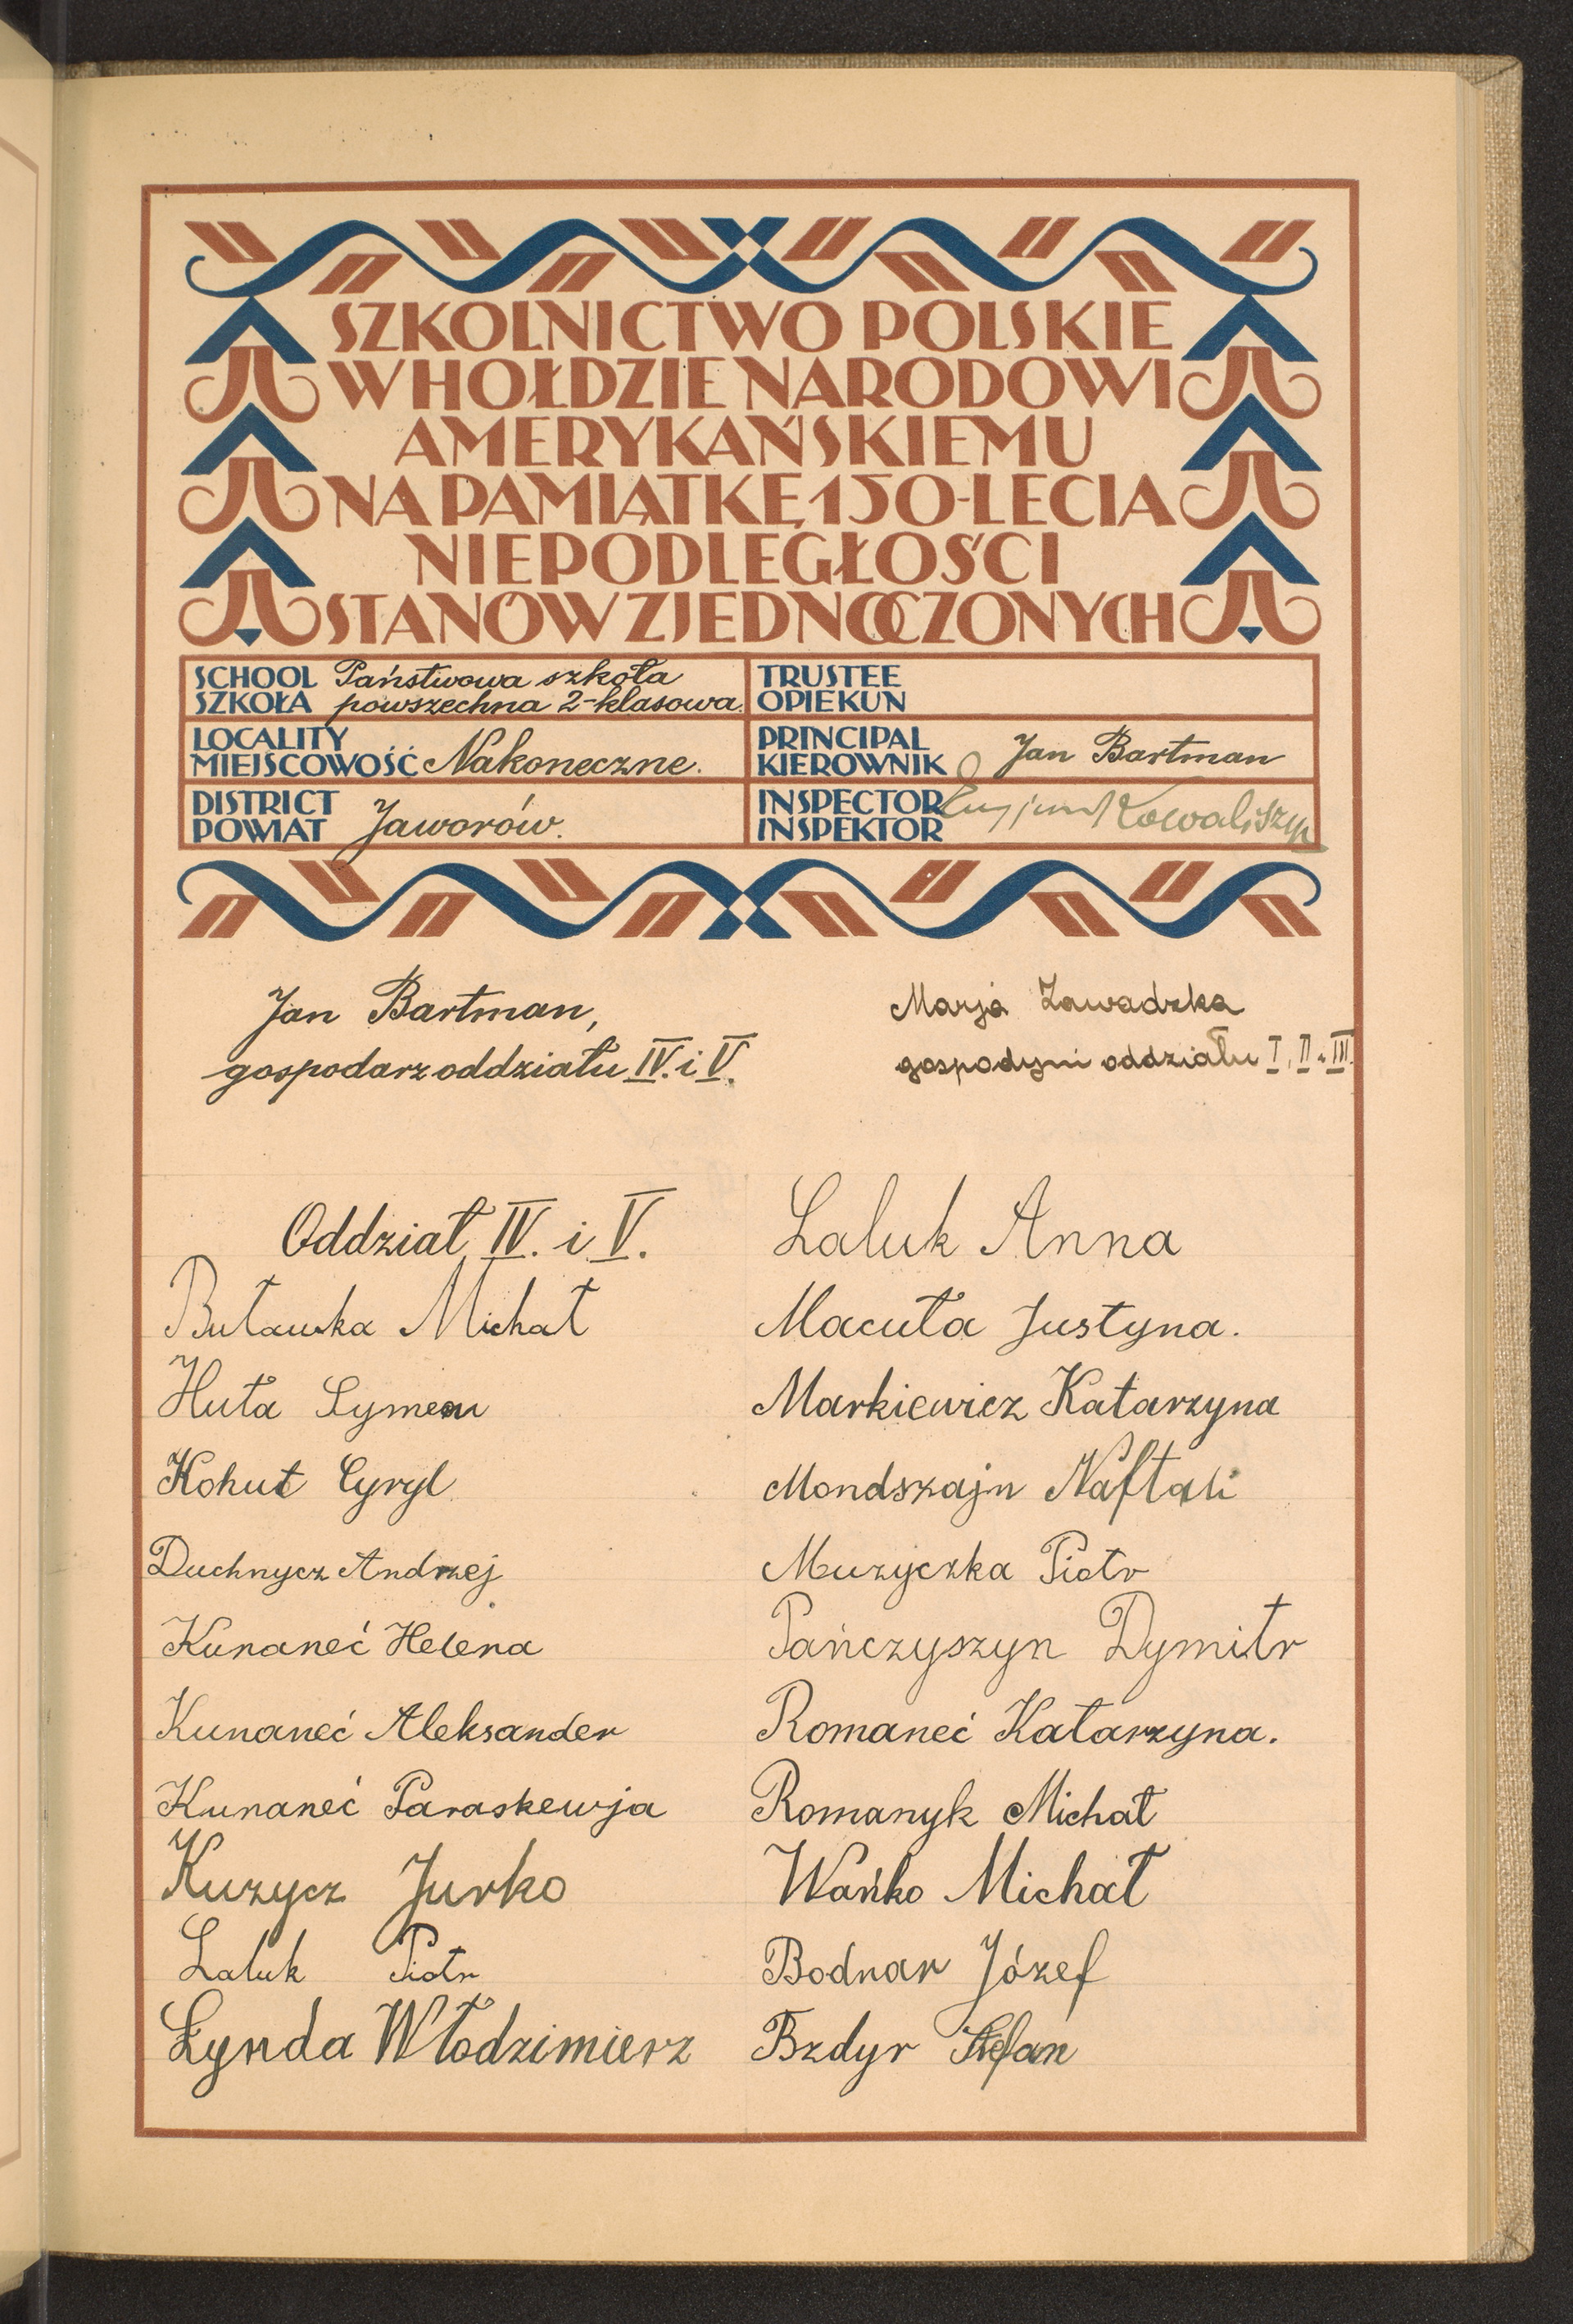 SZKOLNICTWO POLSKIE
W HOŁDZIE NARODOWI
AMERYKAŃSKIEMU
NA PAMIĄTKĘ 150-LECIA
NIEPODLEGŁOŚCI
STANÓW ZJEDNOCZONYCH
SCHOOL
SZKOŁA
Państwowa szkoła
powszechna 2-klasowa.
TRUSTEE
OPIEKUN
LOCALITY
MIEJSCOWOŚĆ
Nakoneczne.
PRINCIPAL
KIEROWNIK
Jan Bartman
DISTRICT
POWIAT
Jaworów.
INSPECTOR
INSPEKTOR
Kowaliszyn
Jan Bartman,
gospodarz oddziału IV. i V.
Marja Zawadzka
gospodyni oddziału I, II i III.
Oddział IV. i V.
Buławka Michał
Huta Symeon
Kohut Cyryl
Duchnycz Andrzej
Kunaneć Helena
Kunaneć Aleksander
Kunaneć Paraskewja
Kuzycz Jurko
Laluk Piotr
Łynda Włodzimierz
Laluk Anna
Macuła Justyna.
Markiewicz Katarzyna
Mondszajn Naftali
Muzyczka Piotr
Pańczyszyn Dymitr
Romaneć Katarzyna.
Romanyk Michał
Wańko Michał
Bodnar Józef
Bzdyr Stefan